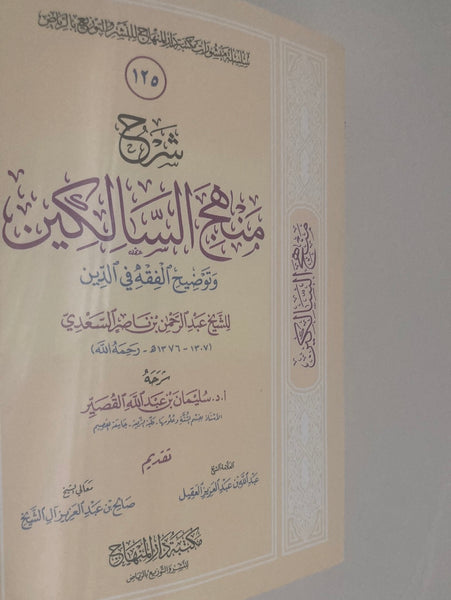 سلسلة منشورات مكتبة دار المنهاج للنشر والتوزيع بالرياض
١٢٥
شرح
منهج السالكين
وتوضيح الفقه في الدين
للشيخ عبد الرحمن بن ناصر السعدي
(١٣٠٧ - ١٣٧٦هـ - رحمه الله)
شرحه
أ.د. سليمان بن عبد الله القصير
الأستاذ بقسم السنة وعلومها - كلية الشريعة - جامعة القصيم
تقديم
العلامة الشيخ
عبد الله بن عبد العزيز العقيل
معالي الشيخ
صالح بن عبد العزيز آل الشيخ
مكتبة دار المنهاج
للنشر والتوزيع بالرياض
منهج السالكين